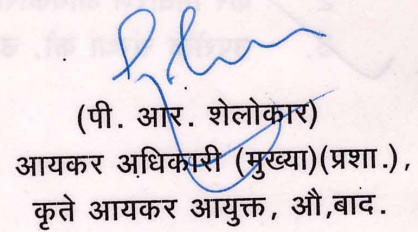 (पी. आर. शेलोकार)
आयकर अधिकारी (मुख्या)(प्रशा.),
कृते आयकर आयुक्त, औ,बाद.